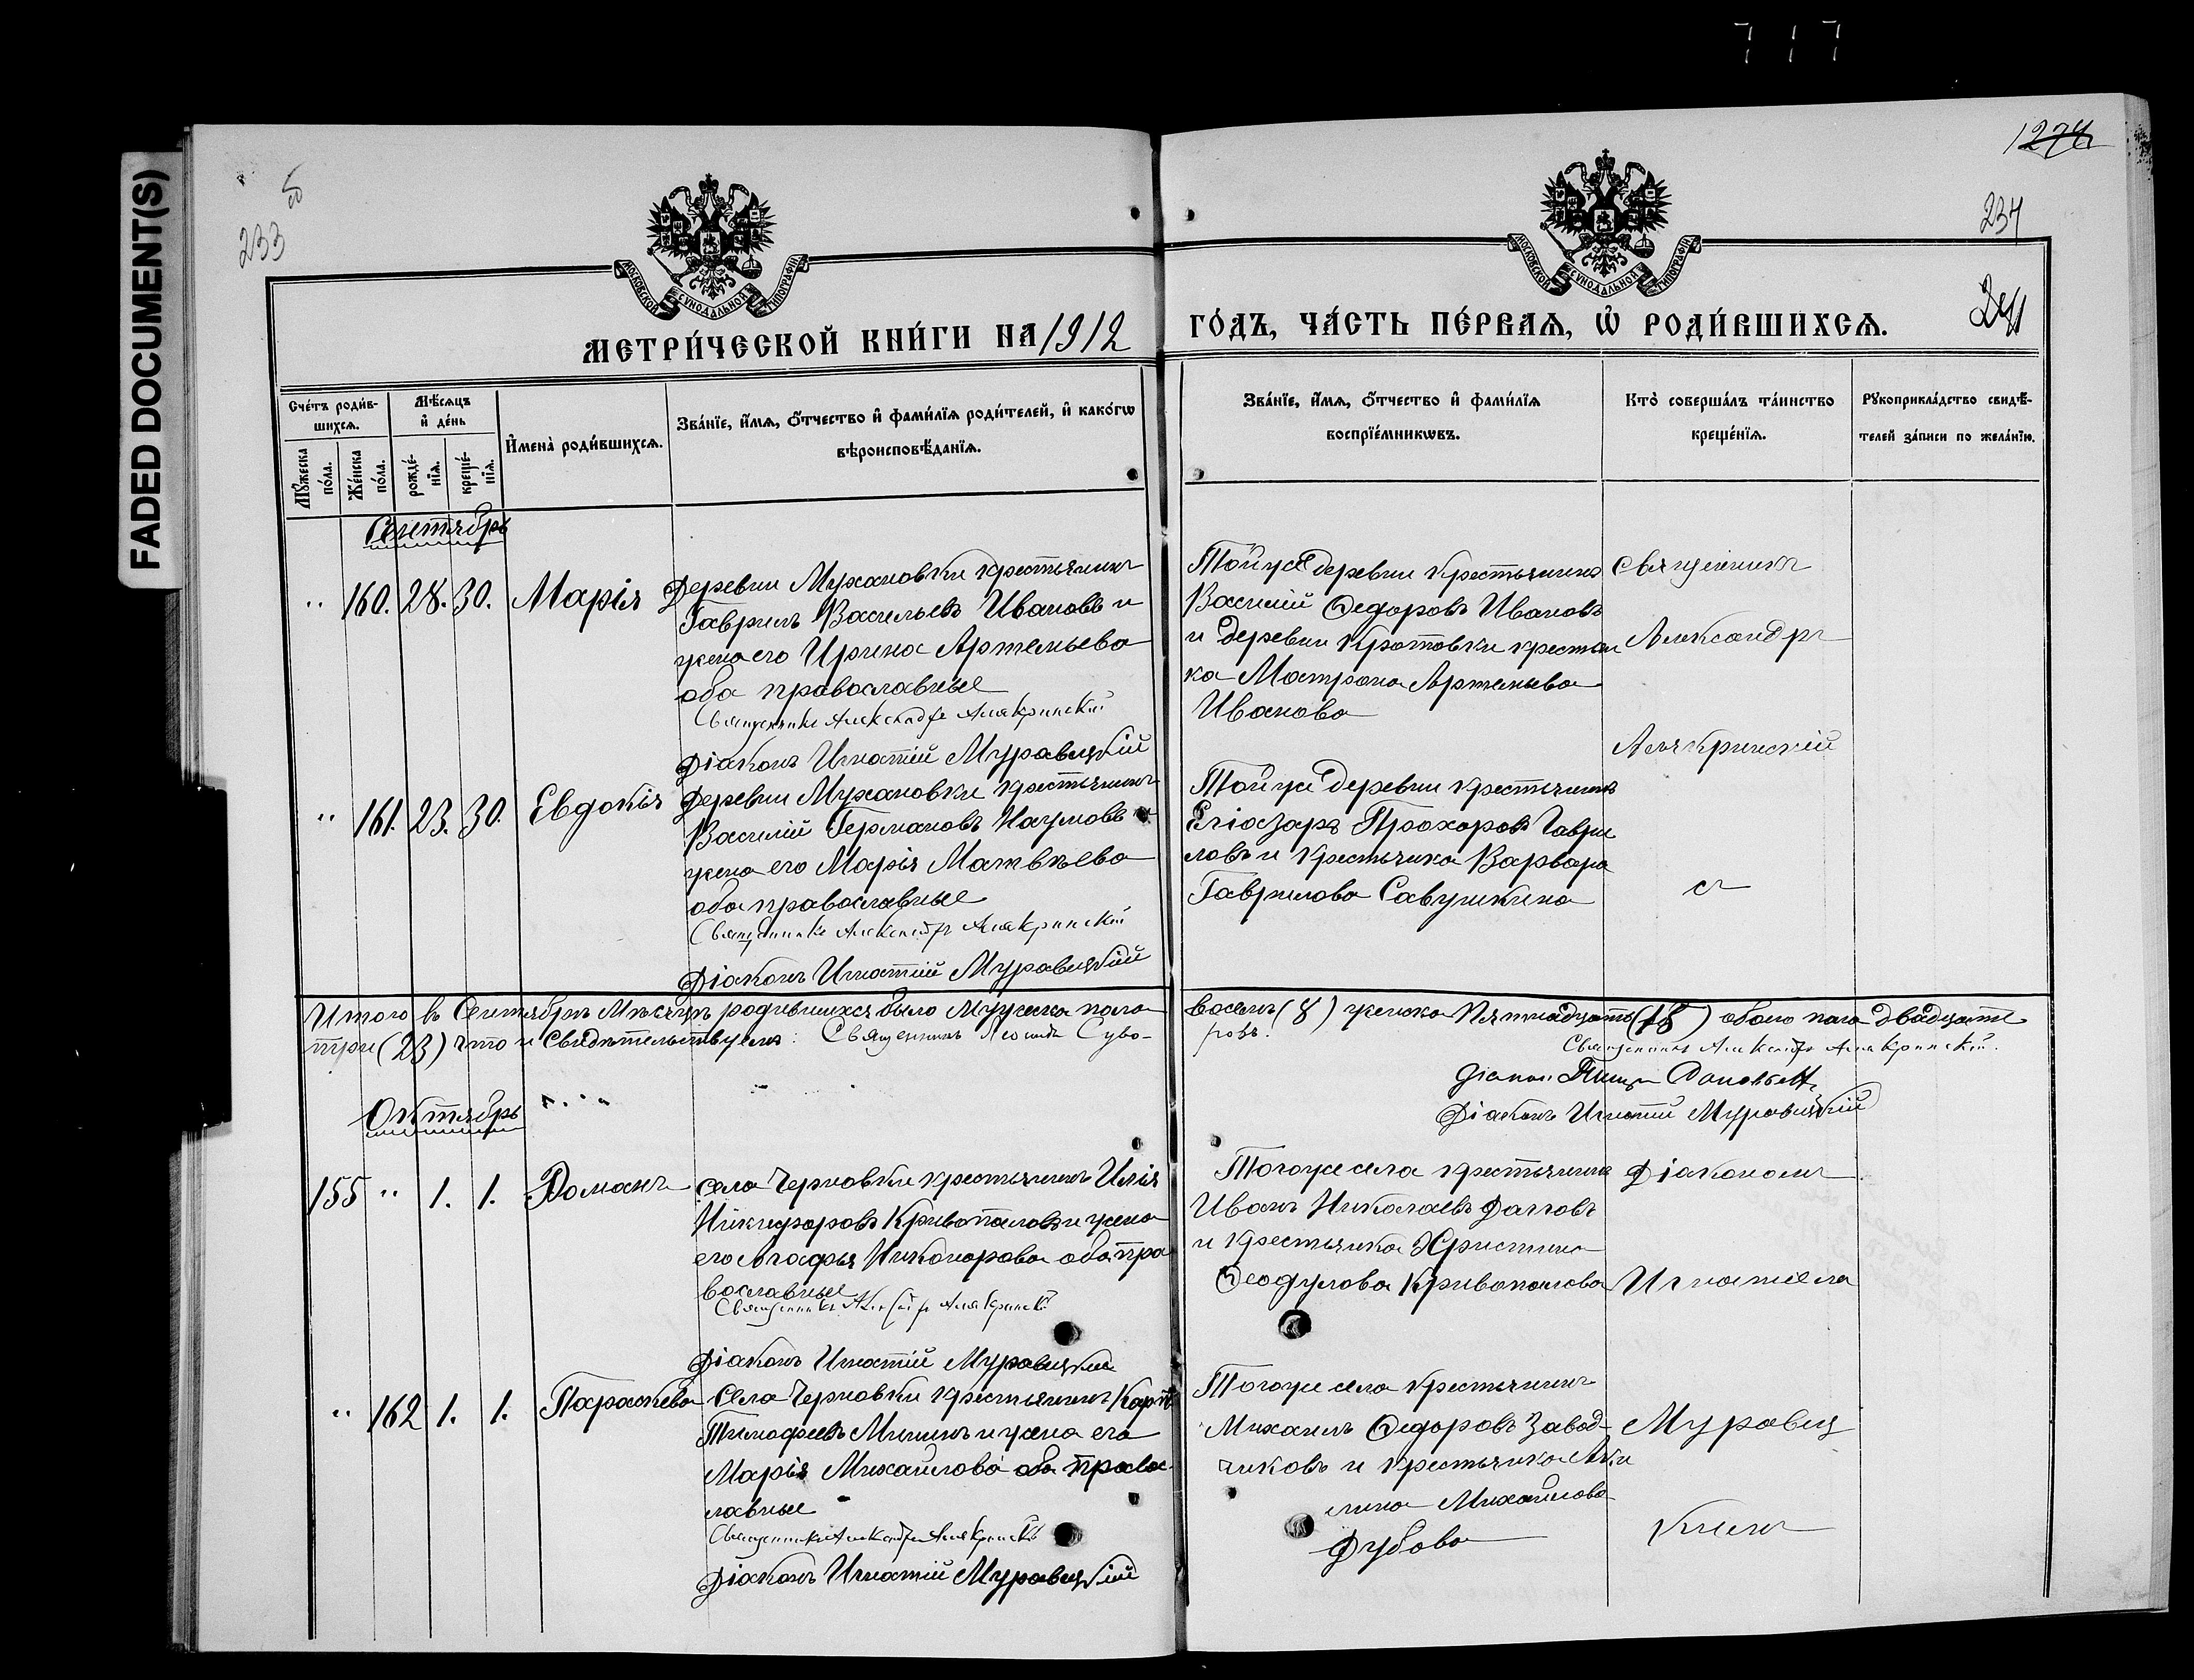 717
FADED DOCUMENT(S)
233
об
234
МОСКОВСКОЙ СѴНОДАЛЬНОЙ ТИПОГРАФІИ
МОСКОВСКОЙ СѴНОДАЛЬНОЙ ТИПОГРАФІИ
МЕТРИ́ЧЕСКОЙ КНИ́ГИ НА 1912 ГО́ДЪ, ЧА́СТЬ ПЕ́РВАѦ, Ѡ҆ РОДИ́ВШИХСѦ.
Сче́тъ роди́в-
шихсѧ.
Мѣ́сѧцъ
и҆ де́нь
Мꙋ́жеска
по́ла.
Же́нска
по́ла.
рожде́-
нїѧ.
креще́-
нїѧ.
И҆мена̀ роди́вшихсѧ.
Зва́нїе, и҆́мѧ, ѻ҆́тчество и҆ фами́лїѧ роди́телей, и҆ како́гѡ
вѣроисповѣ́данїѧ.
Зва́нїе, и҆́мѧ, ѻ҆́тчество и҆ фами́лїѧ
воспрїе́мникѡвъ.
Кто̀ соверша́лъ та́инство
креще́нїѧ.
Рꙋкоприкла́дство свидѣ́-
телей за́писи по жела́нїю.
Сентябрь
" 160. 28. 30. Марія
Деревни Мухановки крестьянинъ
Гаврилъ Васильевъ Ивановъ и
жена его Ирина Артемьева
оба православные
Священникъ Александръ Алякринскій
Діаконъ Игнатій Муравицкій
Тойже деревни крестьянинъ
Василій Ѳедоровъ Ивановъ
и деревни Кротовки крестьян
ка Матрона Артемьева
Иванова
Священникъ
Александръ
Алякринскій
" 161. 23. 30. Евдокія
Деревни Мухановки крестьянинъ
Василій Германовъ Наумовъ и
жена его Марія Матвѣева
оба православные
Священникъ Александръ Алякринскій
Діаконъ Игнатій Муравицкій
Тойже деревни крестьянинъ
Еліазаръ Прохоровъ Гаври
ловъ и крестьянка Варвара
Гаврилова Савушкина
съ
Итого въ Сентябрѣ Мѣсяцѣ родившихся было Мужска пола восемь (8) женска Пятнадцать (15) обоего пола двадцать
три (23) что и свидѣтельствуемъ: Священникъ Леонидъ Суво-
ровъ.
Священникъ Александръ Алякринскій.
Діаконъ
Діаконъ Игнатій Муравицкій
Октябрь
155 " 1. 1. Романъ
села Черновки крестьянинъ Илія
Никифоровъ Кривопаловъ и жена
его Агафья Никонорова оба пра
вославные
Священникъ Александръ Алякринскій
Діаконъ Игнатій Муравицкій
Тогоже села крестьянинъ
Иванъ Николаевъ
и крестьянка Христина
Ѳеодулова Кривопалова
Діакономъ
Игнатіемъ
" 162 1. 1. Параскева
Села Черновки крестьянинъ Карпъ
Тимофеевъ Мишинъ и жена его
Марія Михайлова оба правос
лавные
Священникъ Александръ Алякринскій
Діаконъ Игнатій Муравицкій
Тогоже села крестьянинъ
Михаилъ Ѳедоровъ Завод-
чиковъ и крестьянка Аки
лина Михайлова
Дубова
Муравиц
кимъ